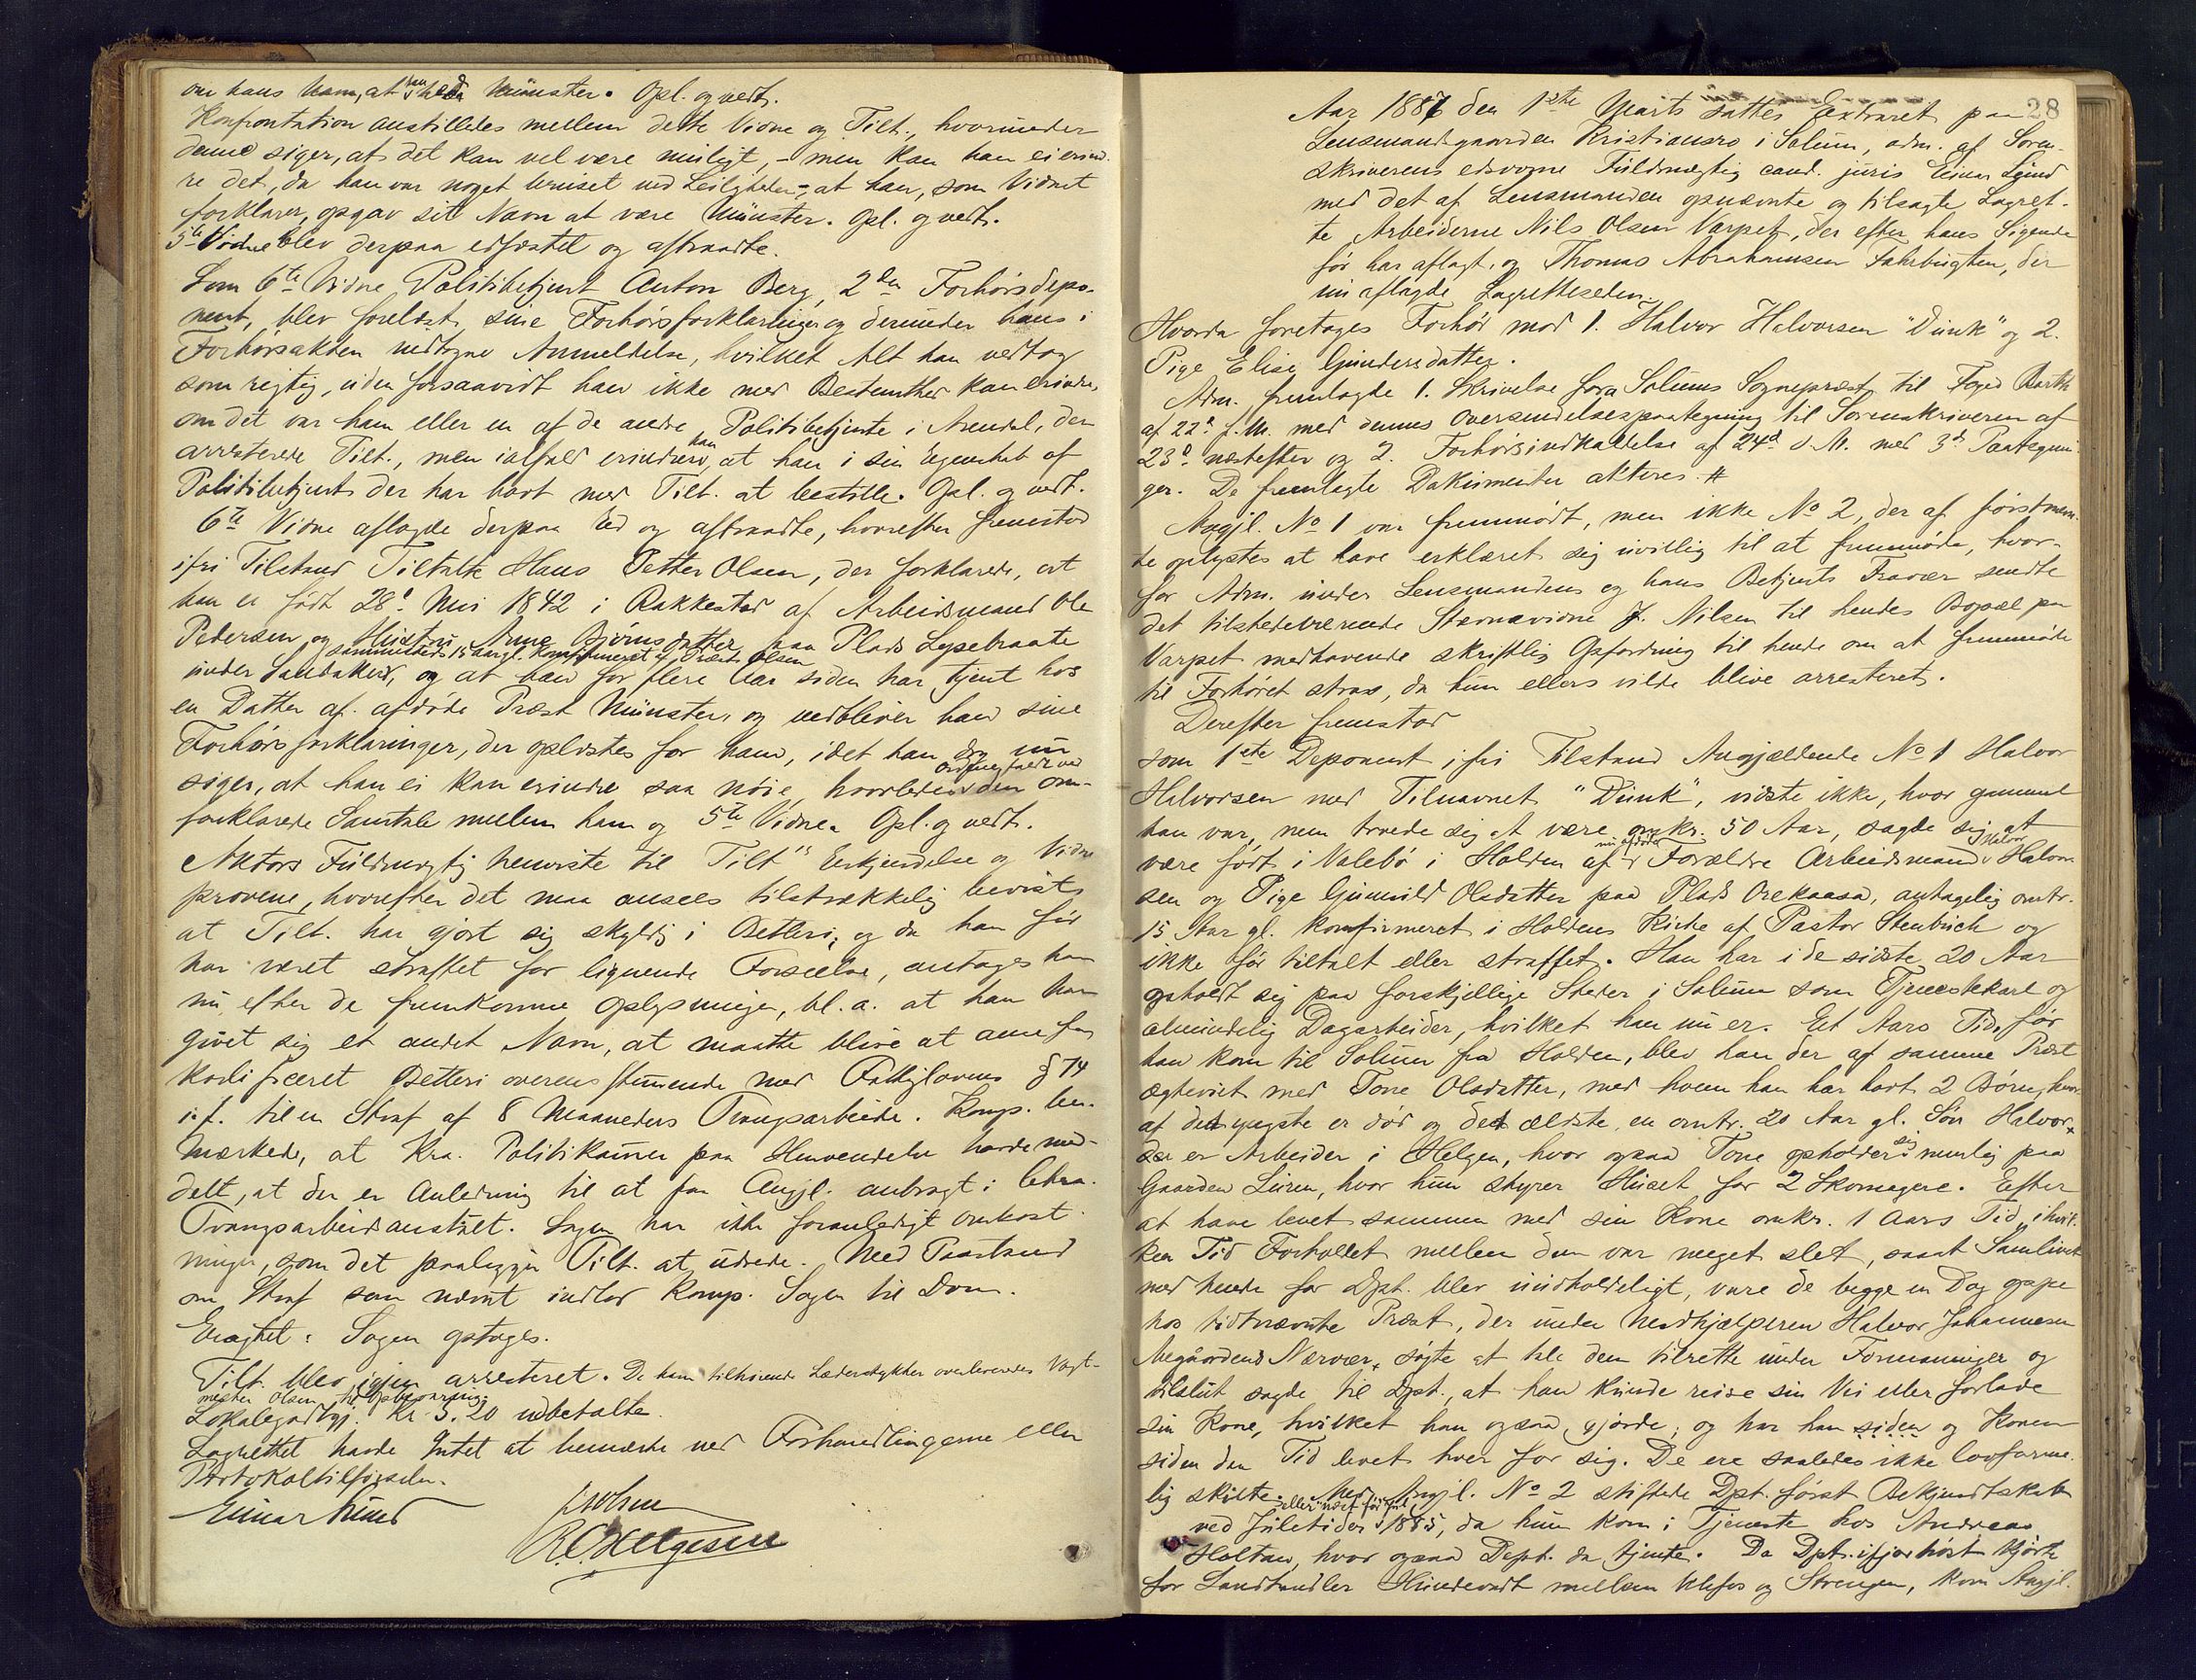 om hans Navn, at han hed Münster. Opl. og vedt.
Konfrontation anstilledes mellem dette Vidne og Tilt., hvorunder
denne siger, at det kan vel være muligt, - men kan han ei erind-
re det, da han var noget beruset ved Leiligheden, - at han, som Vidnet
forklarer, opgav sit Navn at være Münster. Opl. og vedt.
5te Vidne blev derpaa edfæstet og aftraadte.
Som 6te Vidne Politibetjent Anton Berg, 2den Forhørsdepo-
nent, blev forelæst sine Forhørsforklaringer og derunder hans i
Forhørsakten indtagne Anmeldelse, hvilket Alt han vedtog
som rigtig, uden forsaavidt han ikke med Bestemthed kan erindre,
om det var ham eller en af de andre Politibetjente i Arendal, der
arresterede Tilt., men ialfald erindrer han, at han i sin Egenskab af
Politibetjent der har havt med Tilt. at bestille. Opl. og vedt.
6te Vidne aflagde derpaa Ed og aftraadte, hvorefter fremstod
i fri Tilstand Tiltalte Hans Petter Olsen, der forklarede, at
han er født 28de Mai 1842 i Rakkestad af Arbeidsmand Ole
Pedersen og Hustru Anne Bjørnsdatter paa Plads Lysebraate
sammesteds 15 Aar gl. konfirmeret af Præst Olsen
under Sandaker, og at han for flere Aar siden har tjent hos
en Datter af afdøde Præst Münster, og vedbliver han sine
Forhørsforklaringer, der oplæstes for ham, idet han dog nu
siger, at han ei kan erindre saa nøie, hvorledes Ordene faldt ved den om-
forklarede Samtale mellem ham og 5te Vidne. Opl. og vedt.
Aktors Fuldmægtig henviste til Tilt's Erkjendelse og Vidne-
provene, hvorefter det maa ansees tilstrækkelig bevist
at Tilt. har gjort sig skyldig i Betleri, og da han før
har været straffet for lignende Forseelse, antages han
nu efter de fremkomne Oplysninger, bl. a. at han har
givet sig et andet Navn, at maatte blive at anse for
kvalificeret Betleri overensstemmende med Fattiglovens § 74
i. f. til en Straf af 8 Maaneders Tvangsarbeide. Komp. be-
mærkede, at Kra. Politikammer paa Henvendelse havde med-
delt, at der er Anledning til at faa Angjl. anbragt i
Tvangsarbeidsanstalt. Sagen har ikke foranlediget Omkost-
ninger, som det paaligger Tilt. at udrede. Med Paastand
om Straf som nævnt indlod Komp. Sagen til Dom.
Eragtet: Sagen optages.
Tilt. blev igjen arresteret. De ham tilhørende Læderstykker overleveredes Vagt-
mester Olsen til Opbevaring.
Lokalegodtgj. Kr. 3.20 udbetalte.
Lagrettet havde Intet at bemærke ved Forhandlingerne eller
Protokoltilførselen.
Einar Lund
R. C. Helgesen
28
Aar 1887 den 1ste Marts sattes Extraret paa
Lensmandsgaarden Kristiansro i Solum, adm. af Soren-
skriverens edsvorne Fuldmægtig cand. juris Einar Lund
med det af Lensmanden opnævnte og tilsagte Lagret-
te Arbeiderne Nils Olsen Varpet, der efter hans Sigende
før har aflagt, og Thomas Abrahamsen Fahrbugten, der
nu aflagde Lagretteseden.
Hvorda foretages Forhør mod 1. Halvor Halvorsen "Dunk" og 2.
Pige Elise Gundersdatter.
Adm. fremlagde 1. Skrivelse fra Solums Sognepræst til Foged Barth
af 22de f. M. med dennes Oversendelsespaategning til Sorenskriveren af
23de næstefter og 2. Forhørsindkaldelse af 24de s. M. med 3de Paategnin-
ger. De fremlagte Dokumenter akteres. #
Angjl. No 1 var fremmødt, men ikke No 2, der af førstnævn-
te oplystes at have erklæret sig uvillig til at fremmøde, hvor-
for Adm. under Lensmandens og hans Betjents Fravær sendte
det tilstedeværende Stævnevidne J. Nilsen til hendes Bopæl paa
Varpet medhavende skriftlig Opfordring til hende om at fremmøde
til Forhøret strax, da hun ellers vilde blive arresteret.
Derefter fremstod
som 1ste Deponent i fri Tilstand Angjældende No 1 Halvor
Halvorsen med Tilnavnet "Dunk", vidste ikke, hvor gammel
han var, men troede sig at være omkr. 50 Aar, sagde sig at
være født i Valebø i Holden af nu afdøde Forældre Arbeidsmand Halvor Halvor-
sen og Pige Gunild Olsdatter paa Plads Orekaasa, antagelig omtr.
15 Aar gl. konfirmeret i Holdens Kirke af Pastor Stenbuch og
ikke før tiltalt eller straffet. Han har i de sidste 20 Aar
opholdt sig paa forskjellige Steder i Solum som Tjenestekarl og
almindelig Dagarbeider, hvilket han nu er. Et Aars Tid, før
han kom til Solum fra Holden, blev han der af samme Præst
ægteviet med Tone Olsdatter, med hvem han har havt 2 Børn, hvor-
af det yngste er død og det ældste, en omtr. 20 Aar gl. Søn Halvor,
der er Arbeider i Helgen, hvor ogsaa Tone opholder sig nemlig paa
Gaarden Luren, hvor hun styrer Huset for 2 Skomagere. Efter
at have levet sammen med sin Kone omkr. 1 Aars Tid, i hvil-
ken Tid Forholdet mellem dem var meget slet, saaat Samlivet
med hende for Dpt. blev uudholdeligt, vare de begge en Dag oppe
hos sidtnævnte Præst, der under Medhjælperen Halvor Johannesen
Nærvær, søgte at tale dem tilrette under Formaninger og
tilslut sagde til Dpt., at han kunde reise sin Vei eller forlade
sin Kone, hvilket han ogsaa gjorde, og har han siden og Konen
siden den Tid levet hver for sig. De ere saaledes ikke lovforme-
lig skilte. Med Angjl. No 2 stiftede Dpt. først Bekjendtskab
ved Juletider eller næst før Jul 1885, da hun kom i Tjeneste hos Andreas
Holtan, hvor ogsaa Dept. da tjente. Da Dpt. ifjor høst kjørte
for Landhandler Hundevadt mellem Ulefos og Strengen, kom Angjl.